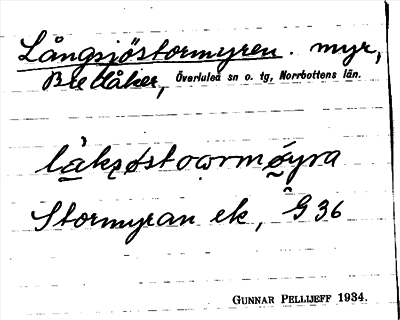 Långsjöstormyren. myr,
Bredåker, Överluleå sn o. tg, Norrbottens län.
Stormyran ek, G 36
GUNNAR PELLIJEFF 1934.